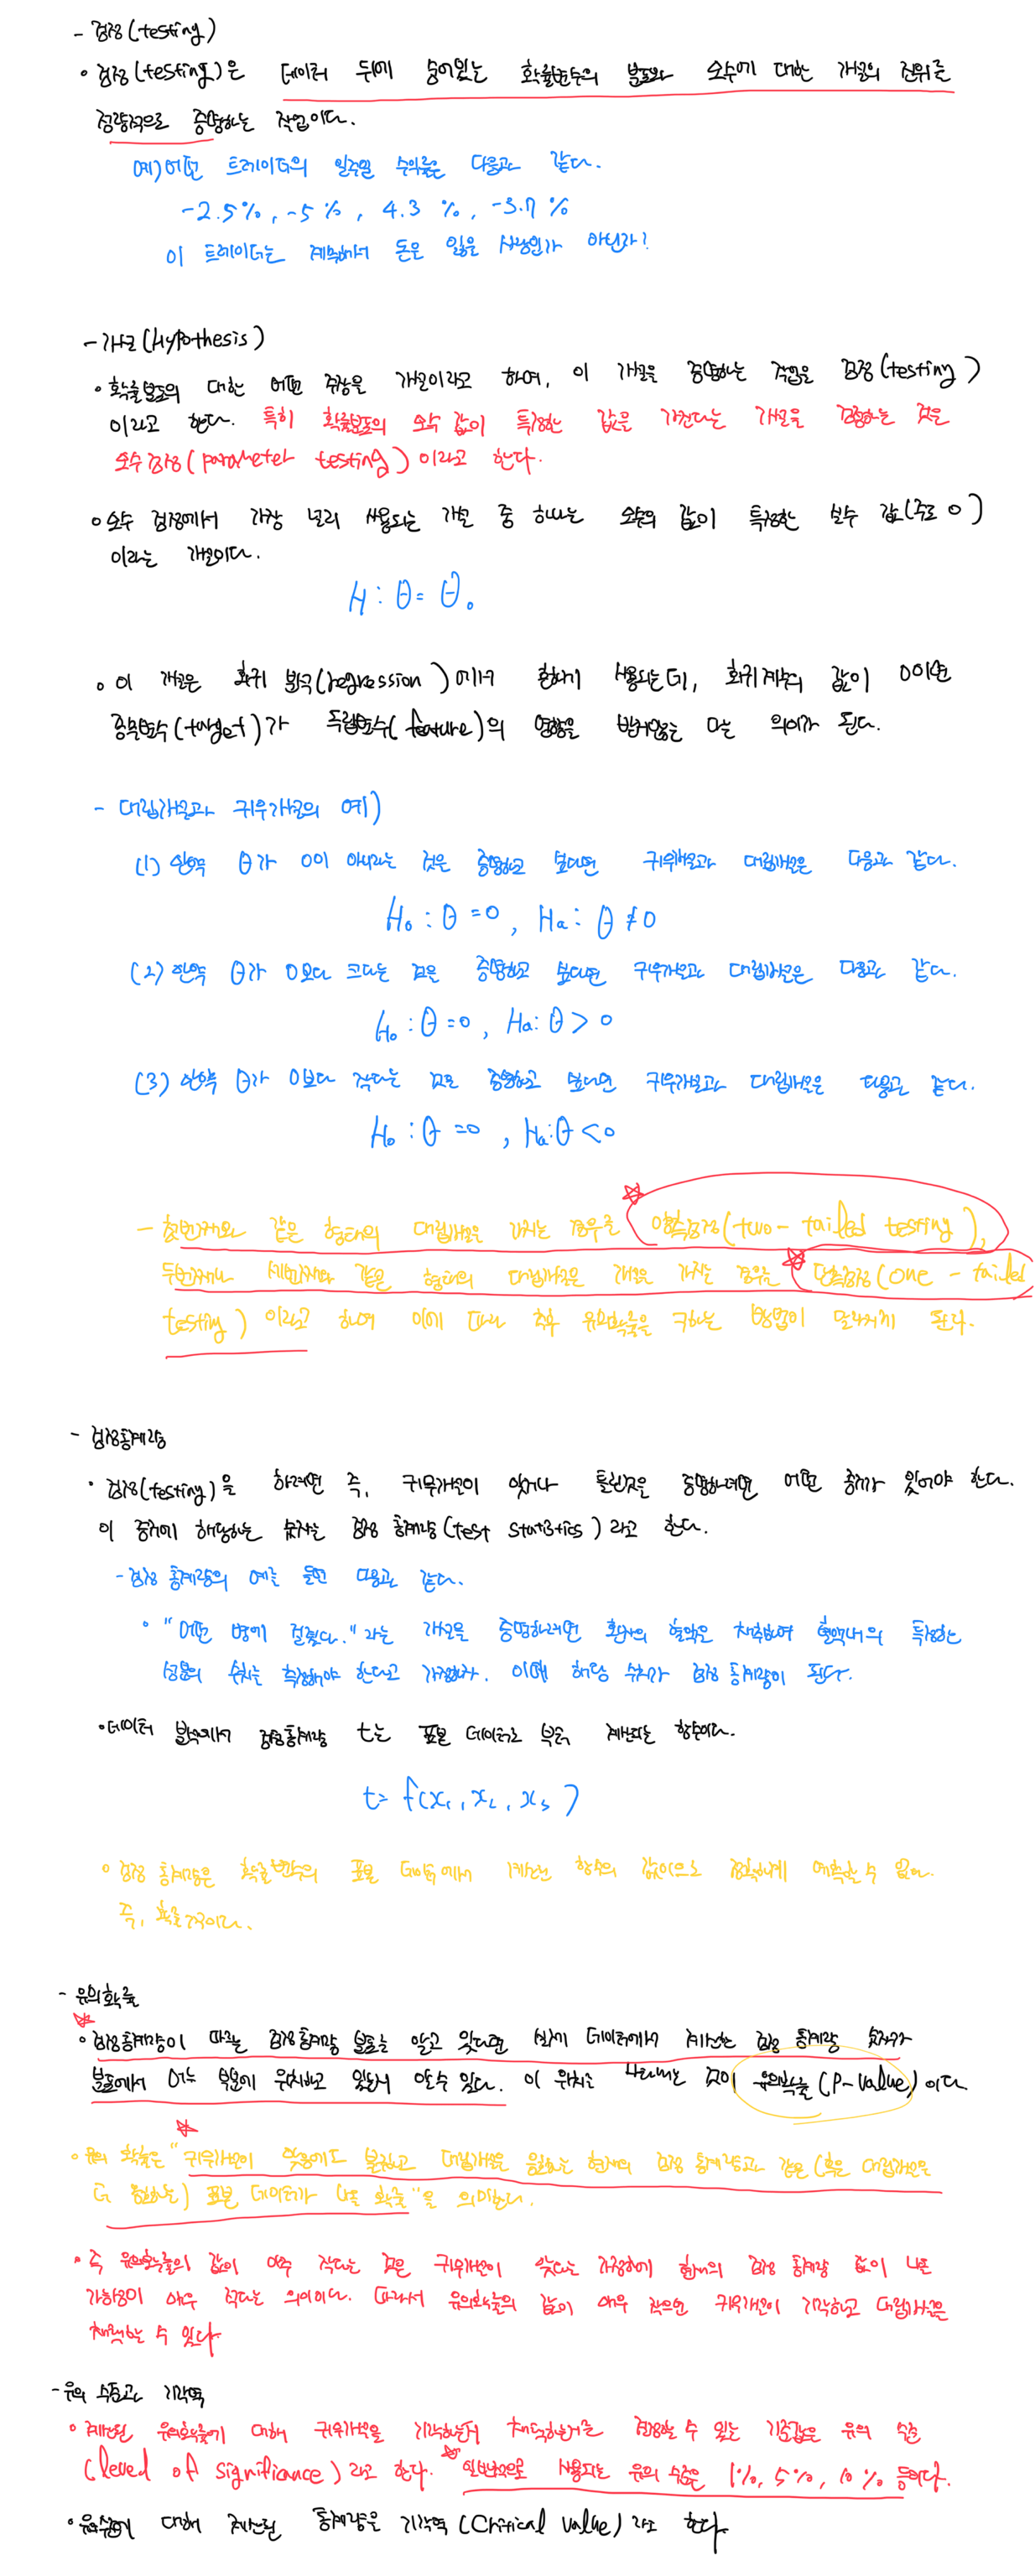 - 검정(testing)
• 검정(testing)은 데이터 뒤에 숨어있는 확률변수의 분포와 모수에 대한 가설의 진위를
정량적으로 증명하는 작업이다.
예) 어떤 트레이더의 일주일 수익률은 다음과 같다.
-2.5%, -5%, 4.3%, -3.7%
이 트레이더는 계속해서 돈을 잃을 사람인가 아닌가?
- 가설(Hypothesis)
• 확률분포의 대한 어떤 주장을 가설이라고 하며, 이 가설을 증명하는 작업을 검정(testing)
이라고 한다. 특히 확률분포의 모수 값이 특정한 값을 가진다는 가설을 검정하는 것은
모수검정(parameter testing)이라고 한다.
• 모수 검정에서 가장 널리 사용되는 가설 중 하나는 모수의 값이 특정한 실수 값(주로 0)
이라는 가설이다.
H : θ = θ₀
• 이 가설은 회귀 분석(regression)에서 흔하게 사용되는데, 회귀계수의 값이 0이면
종속변수(target)가 독립변수(feature)의 영향을 받지않는 다는 의미가 된다.
- 대립가설과 귀무가설의 예)
(1) 만약 θ가 0이 아니라는 것을 증명하고 싶다면 귀무가설과 대립가설은 다음과 같다.
H₀ : θ = 0, Ha : θ ≠ 0
(2) 만약 θ가 0보다 크다는 것을 증명하고 싶다면 귀무가설과 대립가설은 다음과 같다.
H₀ : θ = 0, Ha : θ > 0
(3) 만약 θ가 0보다 작다는 것을 증명하고 싶다면 귀무가설과 대립가설은 다음과 같다.
H₀ : θ = 0, Ha : θ < 0
- 첫번째와 같은 형태의 대립가설을 가지는 경우를 양측검정(two-tailed testing),
두번째나 세번째와 같은 형태의 대립가설을 가지는 경우는 단측검정(one-tailed
testing)이라고 하며 이에 따라 추후 유의확률을 구하는 방법이 달라지게 된다.
- 검정통계량
• 검정(testing)을 하려면 즉, 귀무가설이 맞거나 틀린것을 증명하려면 어떤 증거가 있어야 한다.
이 증거에 해당하는 숫자는 검정 통계량(test statistics)라고 한다.
- 검정 통계량의 예는 들면 다음과 같다.
• "어떤 병에 걸렸다."라는 가설을 증명하려면 환자의 혈액을 채취하여 혈액내의 특정한
성분의 수치를 측정해야 한다고 가정하자. 이때 해당 수치가 검정 통계량이 된다.
• 데이터 분석에서 검정통계량 t는 표본 데이터로 부터 계산되는 함수이다.
t = f(x₁, x₂, x₃)
• 검정 통계량은 확률변수의 표본 에서 계산된 함수의 값이므로 정확하게 예측할 수 없다.
즉, 확률적이다.
- 유의확률
• 검정통계량이 따르는 검정통계량 분포를 알고 있다면 실제 데이터에서 계산한 검정 통계량 숫자가
분포에서 어느 부분에 위치하고 있는지 알수 있다. 이 위치를 나타내는 것이 유의확률(P-value)이다.
• 유의 확률은 "귀무가설이 맞음에도 불구하고 대립가설을 응원하는 현재의 검정 통계량과 같은 (혹은 대립가설을
더 응원하는) 표본 데이터가 나올 확률"을 의미한다.
• 즉 유의확률의 값이 아주 작다는 것은 귀무가설이 맞다는 가정하에 현재의 검정 통계량 값이 나올
가능성이 매우 적다는 의미이다. 따라서 유의확률의 값이 매우 작으면 귀무가설이 기각하고 대립가설을
채택할 수 있다
- 유의 수준과 기각역
• 계산된 유의확률에 대해 귀무가설을 기각하는지 채택하는지를 결정할 수 있는 기준값을 유의 수준
(level of significance)라고 한다. 일반적으로 사용되는 유의 수준은 1%, 5%, 10% 등이다.
• 유의수준에 대해 계산된 통계량을 기각역(Critical value)라고 한다